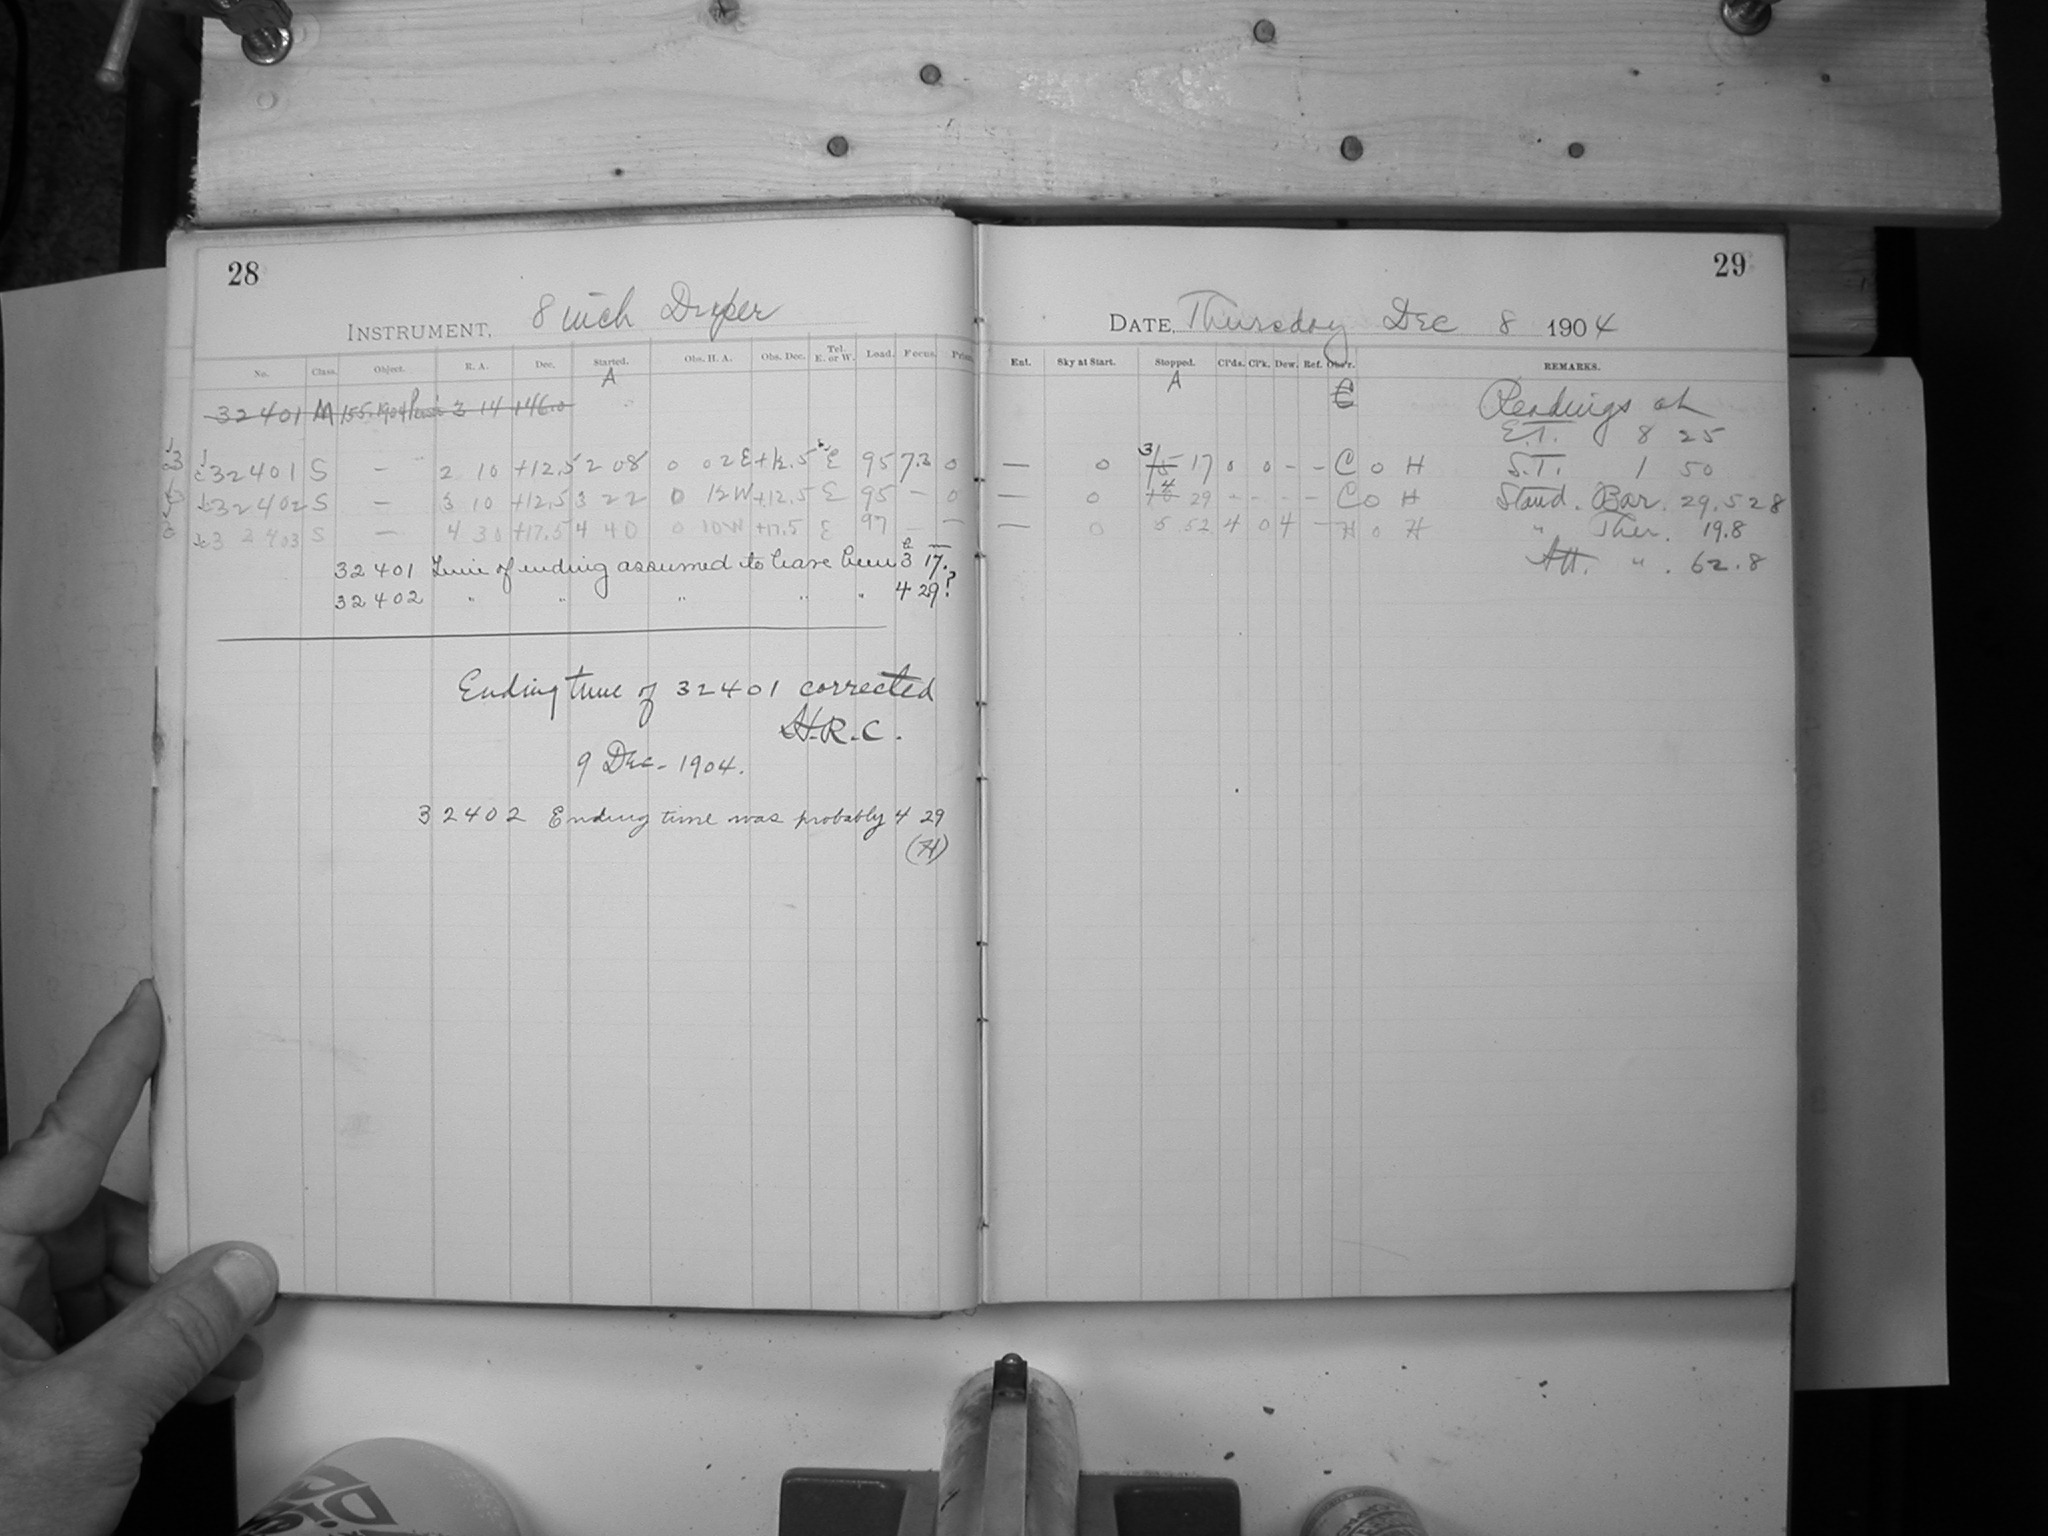 28
INSTRUMENT, 8 inch Draper
No. Class. Object. R. A. Dec. Started. Obs. H. A. Obs. Dec. Tel. E. or W. Load. Focus.
A
32401 M 155. 1904 3 14 +46.0
32401 S — 2 10 +12.5 2 08 0 02 E +12.5 E 95 7.3 0
32402 S — 3 10 +12.5 3 22 0 12 W +12.5 E 95 — 0
32403 S — 4 30 +17.5 4 40 0 10 W +17.5 E 97 — —
32401 Time of ending assumed to have been 3h 17.
32402 " " " " " 4 29?
Ending time of 32401 corrected
H.R.C.
9 Dec- 1904.
32402 Ending time was probably 4 29
(H)
29
DATE, Thursday Dec 8 1904
Ent. Sky at Start. Stopped. Cl'ds. Cl'k. Dew. Ref. Obs'r. REMARKS.
A
C Readings at
E.T. 8 25
— 0 3 15 17 0 0 - - C 0 H S.T. 1 50
— 0 4 29 - - - - C 0 H Stand. Bar. 29.528
— 0 5 52 4 0 4 - H 0 H " Ther. 19.8
Att. " . 62.8
Die